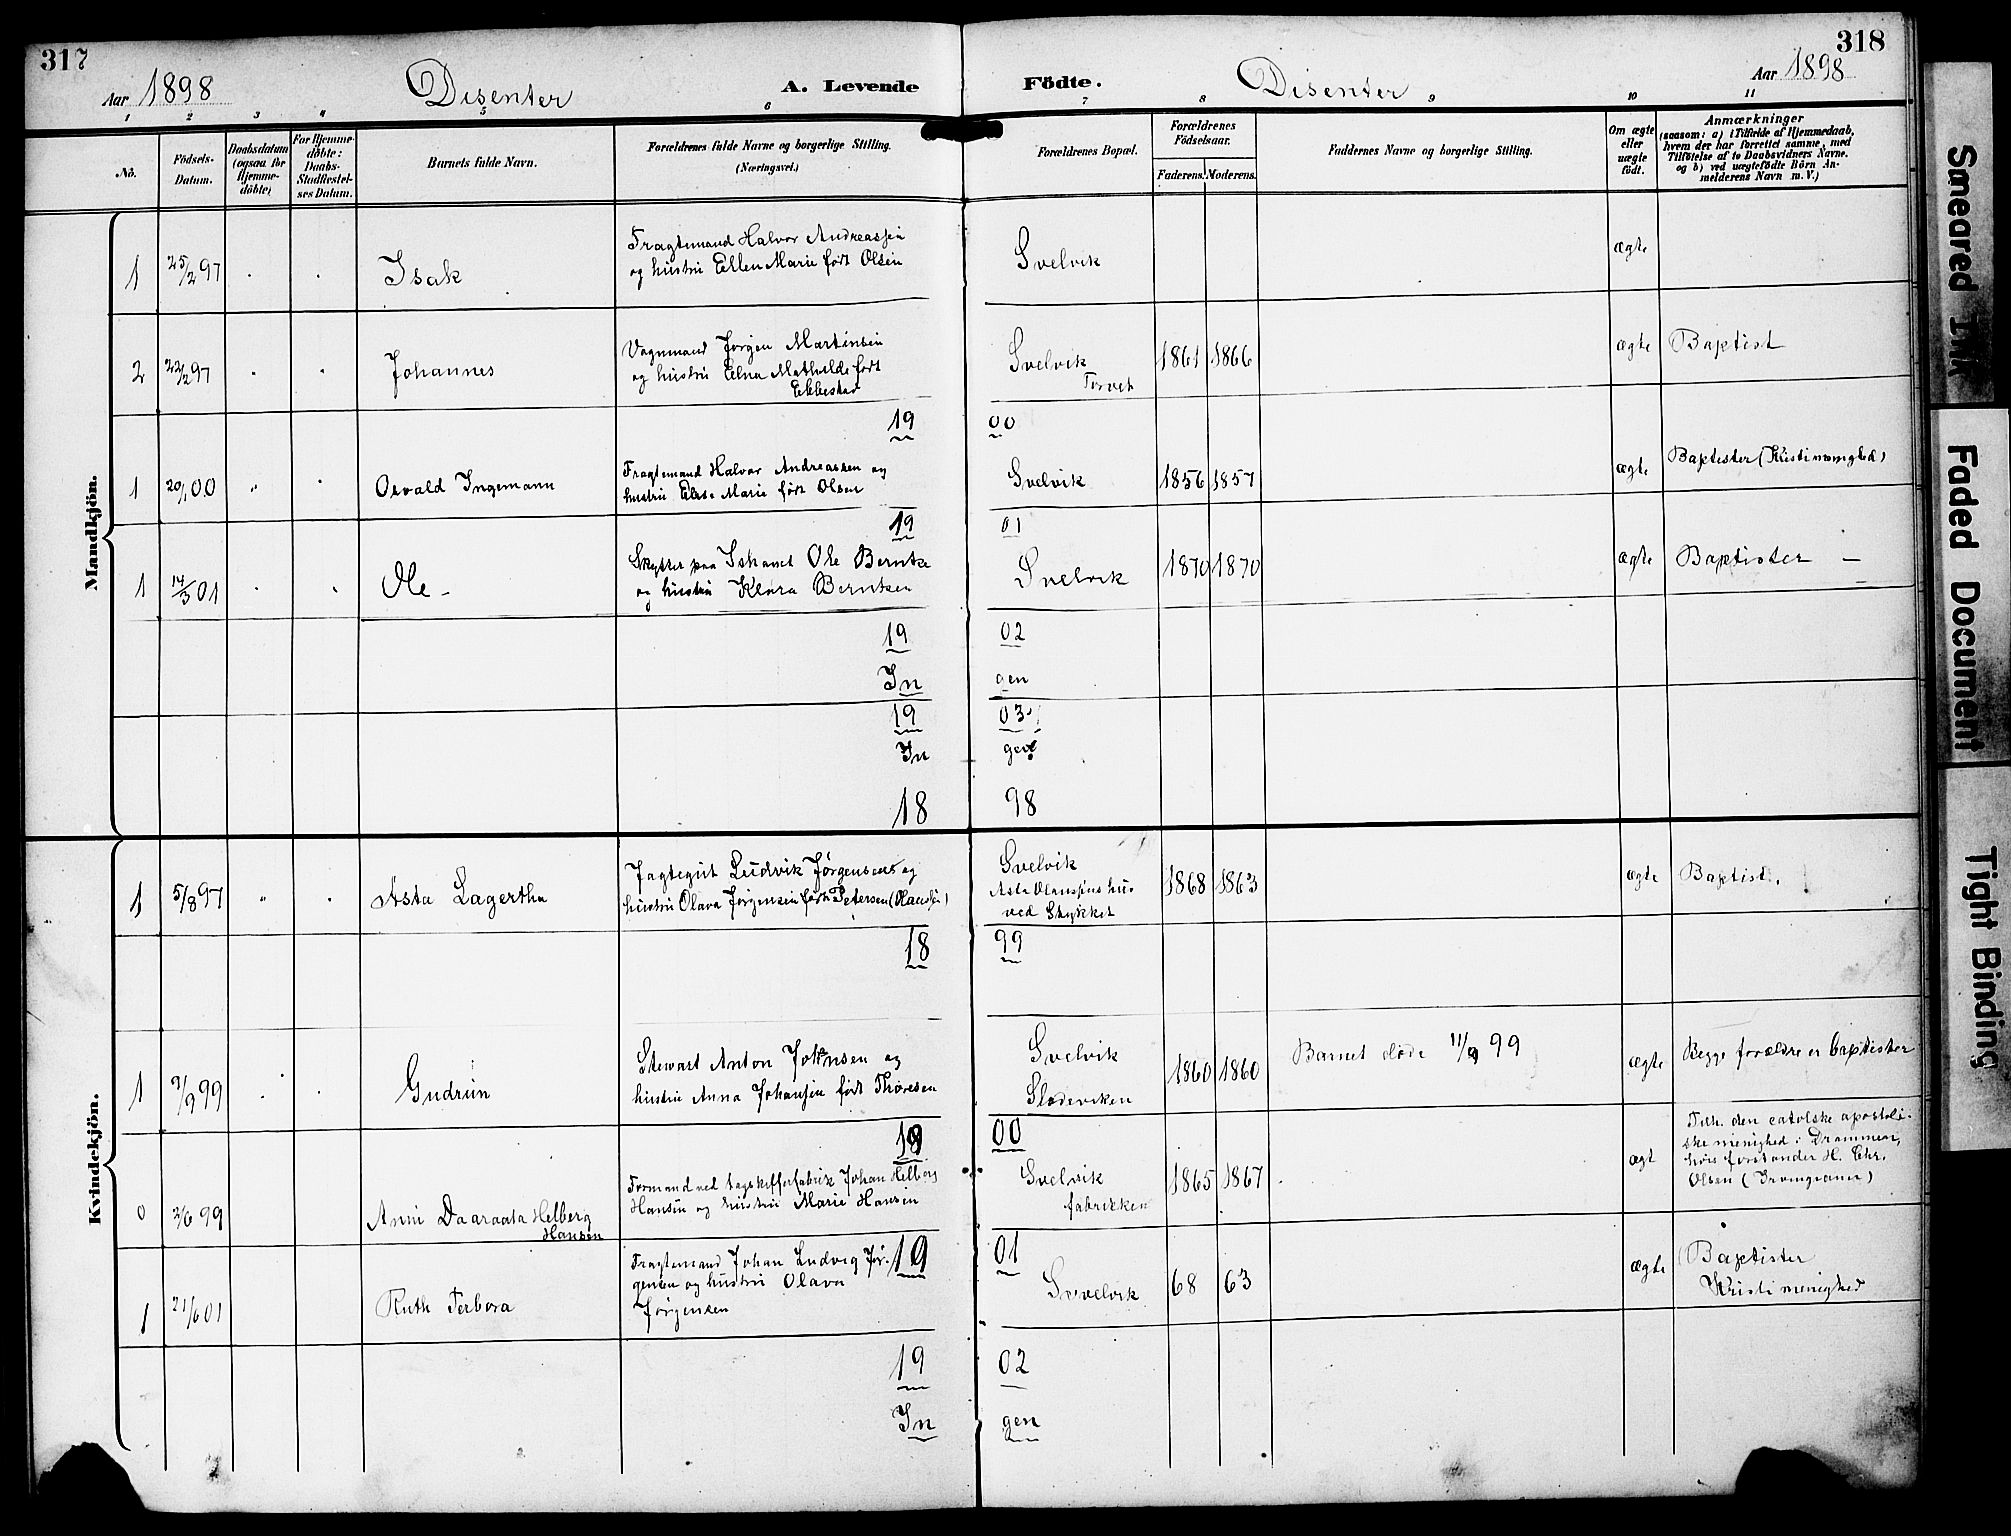 317
318
Aar 1898
Disenter
A. Levende
Födte.
Disenter
Aar 1898
1 2 3 4 5 6 7 8 9 10 11
No.
Födsels-Datum.
Daabsdatum (ogsaa for Hjemmedöbte)
For Hjemmedöbte: Daabs-Stadfestelses Datum.
Barnets fulde Navn.
Forældrenes fulde Navne og borgerlige Stilling.
(Næringsvei.)
Forældrenes Bopæl.
Forældrenes Födselsaar.
Faderens. Moderens.
Faddernes Navne og borgerlige Stilling.
Om ægte eller uægte födt.
Anmærkninger
(saasom: a) i Tilfælde af Hjemmedaab,
hvem der har forrettet samme, med
Tilföielse af to Daabsvidners Navne.
og b) ved uægtefödte Börn An-
melderens Navn m. V.)
Mandkjön.
1 25/2 97 Isak
Fragtemand Halvor Andreassen
og hustru Ellen Marie født Olsen
Svelvik
ægte
2 22/2 97 Johannes
Vognmand Jørgen Martinsen
og hustru Elna Mathilde født
Ebbestad
Svelvik
Torvet
1861 1866
ægte
Baptist
19 00
1 20/1 00 Osvald Ingemann
Fragtemand Halvor Andreassen og
hustru Else Marie født Olsen
Svelvik
1856 1857
ægte
Baptister (Kristi menighed)
19 01
1 14/3 01 Ole -
Skytter paa Ishavet Ole Berntse
og hustru Klara Berntsen
Svelvik
1870 1870
ægte
Baptister -
19 02
In gen
19 03
In gen
18 98
Kvindekjön.
1 5/8 97 Asta Lagertha
Jagtegut Ludvik Jørgensen og
hustru Olava Jørgensen født Petersen (Olausen)
Svelvik
Aste Olausens hus
ved Stykket
1868 1863
ægte
Baptist.
18 99
1 3/9 99 Gudrun
Stewart Anton Johansen og
hustru Anna Johansen født Thoresen
Svelvik
1860 1860
Barnet døde 11/9 99
ægte
Begge forældre er baptister
19 00
0 2/6 99 Anni Daaraata Helberg
Hansen
Formand ved tagskifferfabrik Johan Helberg
Hansen og hustru Marie Hansen
Svelvik
fabrikken
1865 1867
ægt
Tilh. den catolske apostoli-
ske menighed i Drammen,
hvis forstander H. Chr.
Olsen (Irvingianer)
19 01
1 21/6 01 Ruth Terbora
Fragtemand Johan Ludvig Jør-
gensen og hustru Olava
Jørgensen
Svelvik
68 63
ægte
Baptister
Kristi menighed
19 02
In gen
Smeared Ink
Faded Document
Tight Binding